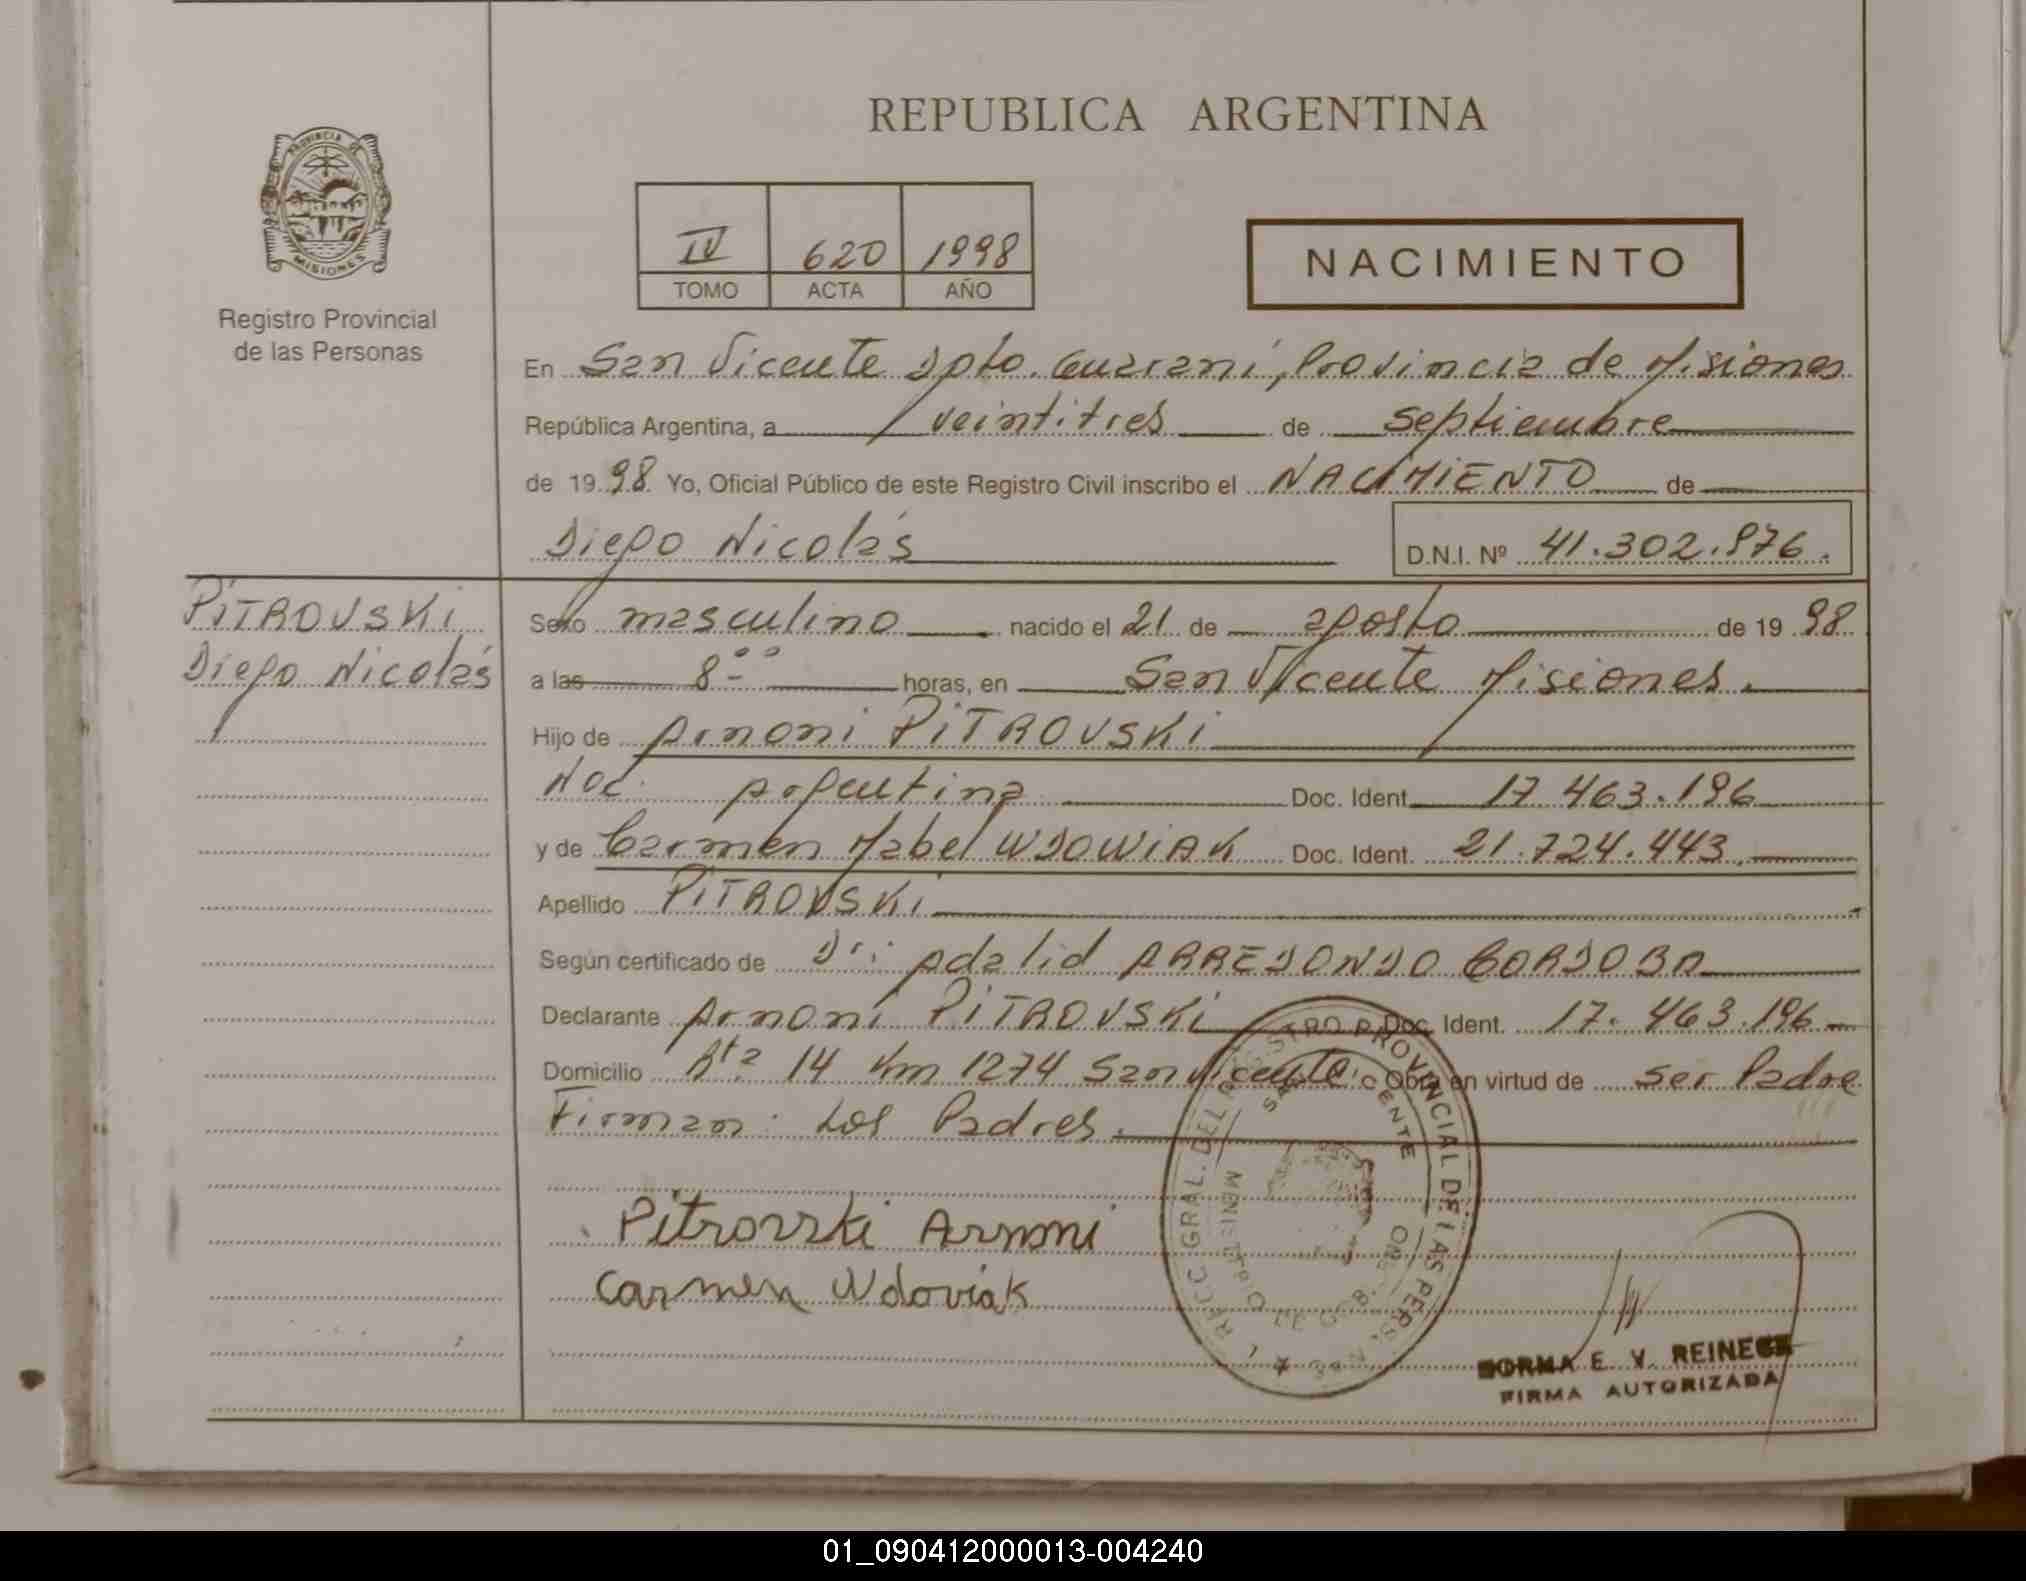 REPUBLICA ARGENTINA
PROVINCIA DE
MISIONES
Registro Provincial
de las Personas
IV 620 1998
TOMO ACTA AÑO
NACIMIENTO
En San Vicente Dpto. Guarani, Provincia de Misiones
República Argentina, a veintitres de septiembre
de 1998 Yo, Oficial Público de este Registro Civil inscribo el NACIMIENTO de
Diego Nicolás D.N.I. Nº 41.302.876.
PITROVSKI
Diego Nicolás
Sexo masculino nacido el 21 de agosto de 1998
a las 8°° horas, en San Vicente Misiones.
Hijo de Arnoni PITROVSKI
Nac. Argentina Doc. Ident. 17.463.196
y de Carmen Mabel WDOWIAK Doc. Ident. 21.724.443.
Apellido PITROVSKI
Según certificado de Dr: Adalid ARREDONDO CORDOBA
Declarante Arnoni PITROVSKI Doc. Ident. 17.463.196
Domicilio Rta 14 Km 1274 San Vicente Obra en virtud de ser Padre
Firman: Los Padres.
Pitrovski Arnoni
Carmen Wdoviak
GRAL. DEL REGISTRO PROVINCIAL DE LAS PERSONAS
SAN VICENTE
MINISTERIO DE GOB.
NORMA E. V. REINECK
FIRMA AUTORIZADA
01_090412000013-004240